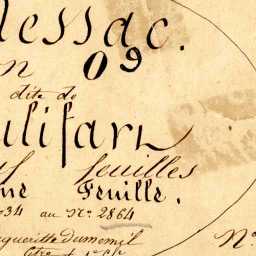 lessac.
n 09
dite de
ulifarn
feuilles
ne Feuille.
34 au Nº 2864
gueritte Dumenil
Nº